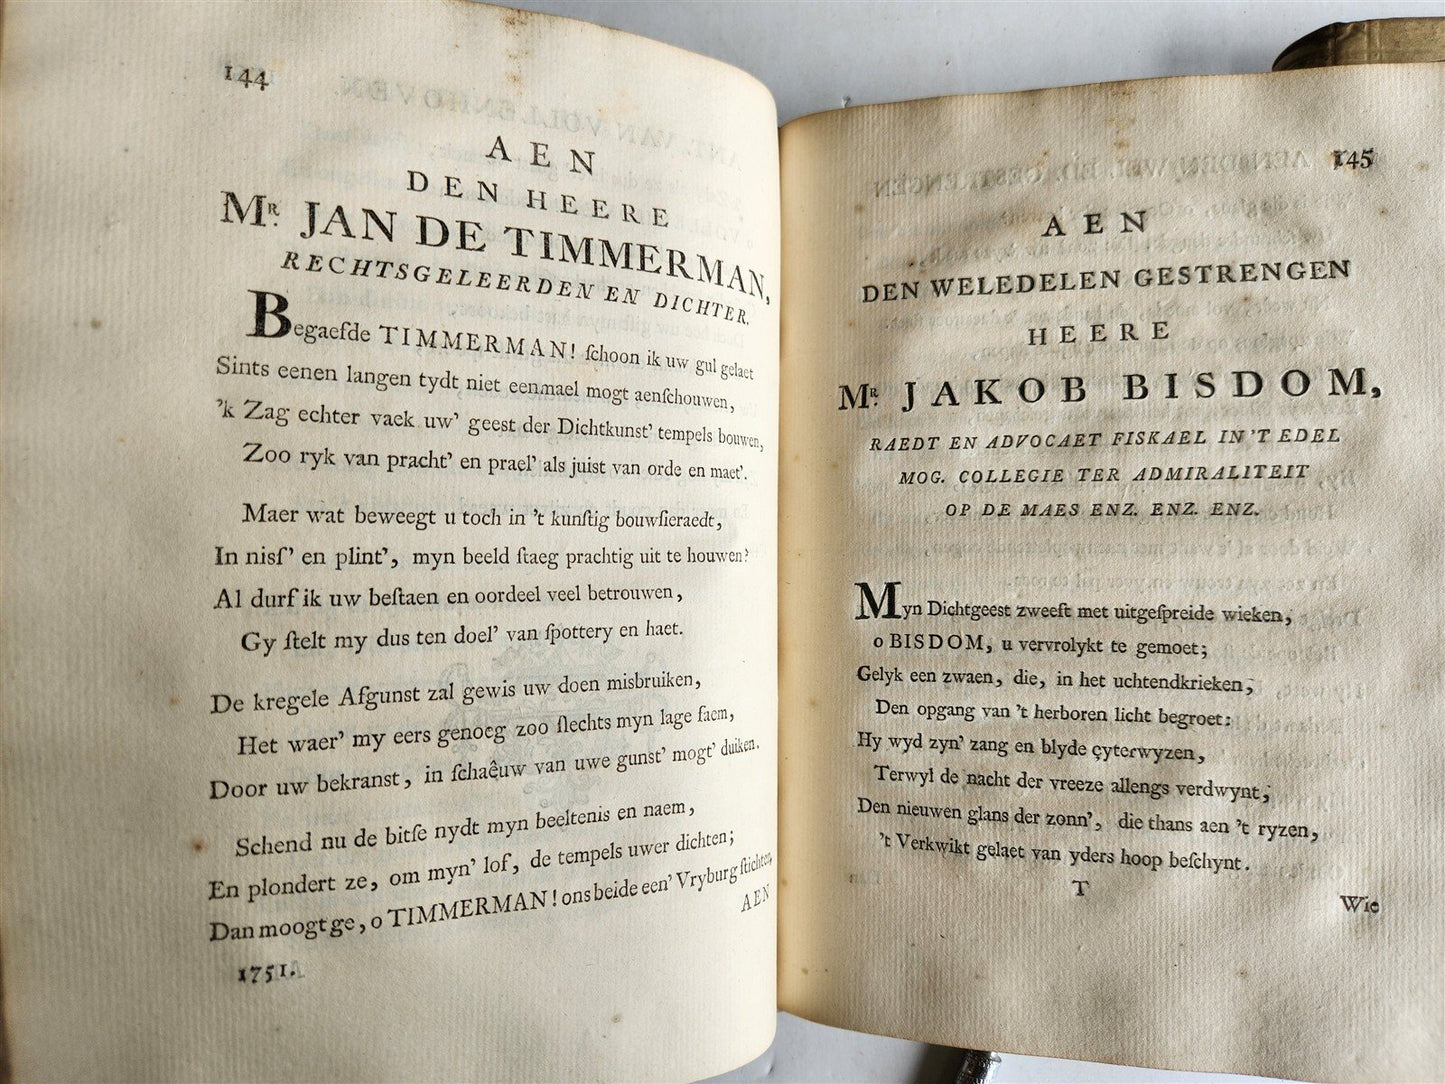 144
AEN
DEN HEERE
Mr. JAN DE TIMMERMAN,
RECHTSGELEERDEN EN DICHTER.
Begaefde TIMMERMAN! ſchoon ik uw gul gelaet
Sints eenen langen tydt niet eenmael mogt aenſchouwen,
'k Zag echter vaek uw' geest der Dichtkunst' tempels bouwen,
Zoo ryk van pracht' en prael' als juist van orde en maet'.
Maer wat beweegt u toch in 't kunſtig bouwſieraedt,
In nisſ' en plint', myn beeld ſtaeg prachtig uit te houwen?
Al durf ik uw beſtaen en oordeel veel betrouwen,
Gy ſtelt my dus ten doel' van ſpottery en haet.
De kregele Afgunst zal gewis uw doen misbruiken,
Het waer' my eers genoeg zoo ſlechts myn lage faem,
Door uw bekranst, in ſchaêuw van uwe gunst' mogt' duiken.
Schend nu de bitſe nydt myn beeltenis en naem,
En plondert ze, om myn' lof, de tempels uwer dichten;
Dan moogt ge, o TIMMERMAN! ons beide een' Vryburg ſtichten,
AEN
1751.
145
AEN
DEN WELEDELEN GESTRENGEN
HEERE
Mr. JAKOB BISDOM,
RAEDT EN ADVOCAET FISKAEL IN 'T EDEL
MOG. COLLEGIE TER ADMIRALITEIT
OP DE MAES ENZ. ENZ. ENZ.
Myn Dichtgeest zweeft met uitgeſpreide wieken,
o BISDOM, u vervrolykt te gemoet;
Gelyk een zwaen, die, in het uchtendkrieken,
Den opgang van 't herboren licht begroet:
Hy wyd zyn' zang en blyde çyterwyzen,
Terwyl de nacht der vreeze allengs verdwynt,
Den nieuwen glans der zonn', die thans aen 't ryzen,
't Verkwikt gelaet van yders hoop beſchynt.
T
Wie